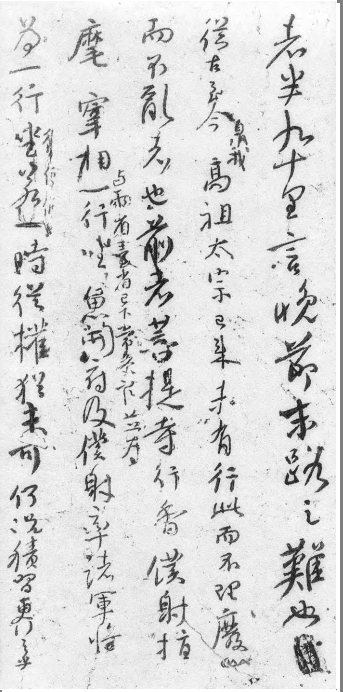 者半九十里言晚節末路之難也
從古至今自我高祖太宗已來未有行此而不理廢
而不亂者也前者菩提寺行香僕射指
麾宰相与兩省臺省已下常參官並為一行坐魚開府及僕射率諸軍將
為一行坐若一時從權猶未可何況積習更行